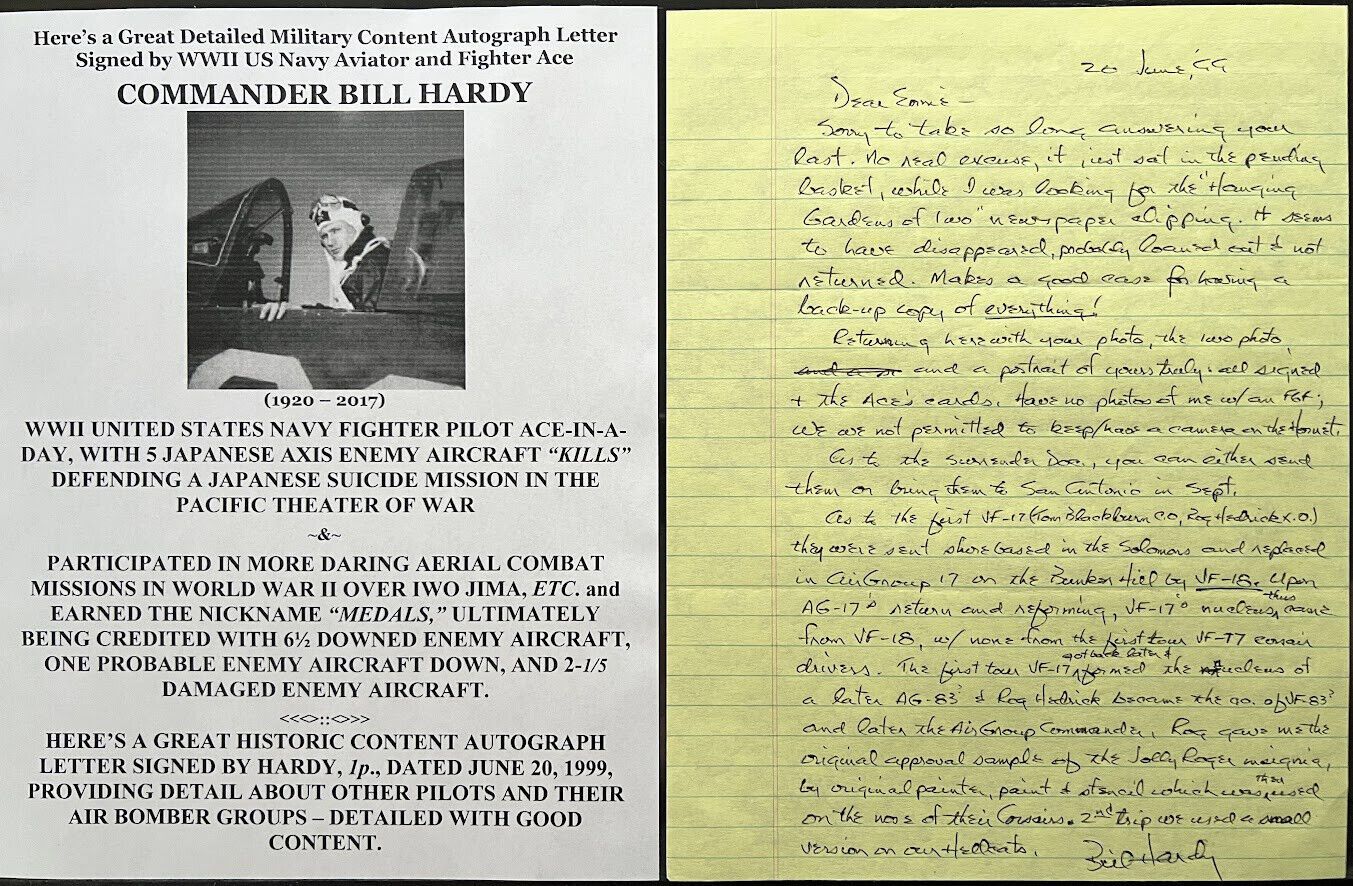 Here's a Great Detailed Military Content Autograph Letter
Signed by WWII US Navy Aviator and Fighter Ace
COMMANDER BILL HARDY
(1920 – 2017)
WWII UNITED STATES NAVY FIGHTER PILOT ACE-IN-A-
DAY, WITH 5 JAPANESE AXIS ENEMY AIRCRAFT “KILLS”
DEFENDING A JAPANESE SUICIDE MISSION IN THE
PACIFIC THEATER OF WAR
~&~
PARTICIPATED IN MORE DARING AERIAL COMBAT
MISSIONS IN WORLD WAR II OVER IWO JIMA, ETC. and
EARNED THE NICKNAME “MEDALS,” ULTIMATELY
BEING CREDITED WITH 6½ DOWNED ENEMY AIRCRAFT,
ONE PROBABLE ENEMY AIRCRAFT DOWN, AND 2-1/5
DAMAGED ENEMY AIRCRAFT.
<<<>::<>>>
HERE'S A GREAT HISTORIC CONTENT AUTOGRAPH
LETTER SIGNED BY HARDY, 1p., DATED JUNE 20, 1999,
PROVIDING DETAIL ABOUT OTHER PILOTS AND THEIR
AIR BOMBER GROUPS – DETAILED WITH GOOD
CONTENT.
20 June, 99
Dear Ernie –
Sorry to take so long answering your
last. No real excuse, it just sat in the pending
basket, while I was looking for the "Hanging
Gardens of Iwo" newspaper clipping. It seems
to have disappeared, probably loaned out & not
returned. Makes a good case for having a
back-up copy of everything!
Returning herewith your photo, the Iwo photo,
and a portrait of yours truly. all signed
+ the Ace's cards. Have no photos of me w/ an F6F;
we are not permitted to keep/have a camera on the Hornet.
As to the Surrender Doc., you can either send
them or bring them to San Antonio in Sept.
As to the first VF-17 (Tom Blackburn C.O., Rog Hedrick X.O.)
they were sent shore based in the Solomons and replaced
in AirGroup 17 on the Bunker Hill by VF-18. Upon
AG-17's return and reforming, VF-17's nucleus thus came
from VF-18, w/ none from the first tour VF-17 corsair
drivers. The first tour VF-17 got back later & formed the nucleus of
a later AG-83 & Rog Hedrick became the co. of VF-83
and later the AirGroup Commander. Rog gave me the
original approval sample of the Jolly Roger insignia,
by original painter, paint & stencil which was then used
on the nose of their Corsairs. 2nd trip we used a small
version on our Hellcats.
Bill Hardy